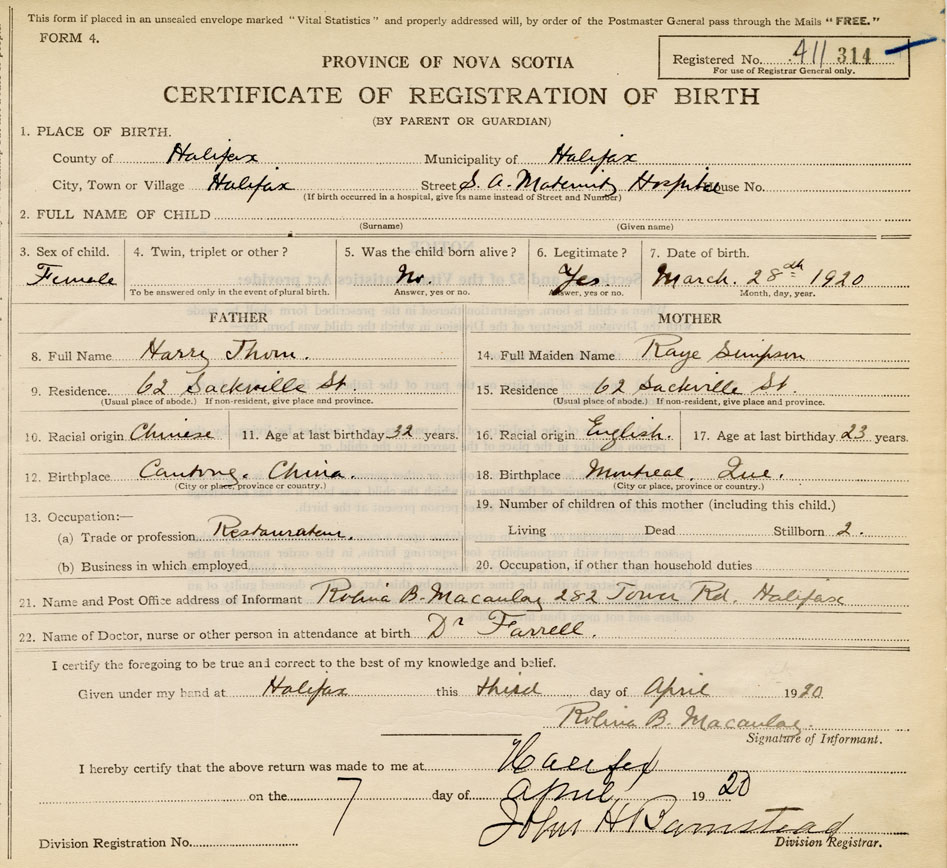 This form if placed in an unsealed envelope marked "Vital Statistics" and properly addressed will, by order of the Postmaster General pass through the Mails "FREE."
FORM 4.
Registered No. 411 314
For use of Registrar General only.
PROVINCE OF NOVA SCOTIA
CERTIFICATE OF REGISTRATION OF BIRTH
(BY PARENT OR GUARDIAN)
1. PLACE OF BIRTH.
County of Halifax Municipality of Halifax
City, Town or Village Halifax Street S. A. Maternity Hospital House No.
(If birth occurred in a hospital, give its name instead of Street and Number)
2. FULL NAME OF CHILD
(Surname) (Given name)
3. Sex of child. 4. Twin, triplet or other? 5. Was the child born alive? 6. Legitimate? 7. Date of birth.
Female No. Yes. March. 28th 1920
To be answered only in the event of plural birth. Answer, yes or no. Answer, yes or no. Month, day, year.
FATHER MOTHER
8. Full Name Harry Thom. 14. Full Maiden Name Raye Simpson
9. Residence. 62 Sackville St. 15. Residence 62 Sackville St
(Usual place of abode.) If non-resident, give place and province. (Usual place of abode.) If non-resident, give place and province.
10. Racial origin Chinese 11. Age at last birthday 32 years. 16. Racial origin English. 17. Age at last birthday 23 years.
12. Birthplace Cantong. China. 18. Birthplace Montreal, Que.
(City or place, province or country.) (City or place, province or country.)
19. Number of children of this mother (including this child.)
13. Occupation:—
(a) Trade or profession Restaurateur. Living Dead Stillborn 2.
(b) Business in which employed 20. Occupation, if other than household duties
21. Name and Post Office address of Informant Rolina B. Macaulay 282 Tower Rd. Halifax
22. Name of Doctor, nurse or other person in attendance at birth Dr Farrell.
I certify the foregoing to be true and correct to the best of my knowledge and belief.
Given under my hand at Halifax this third day of April 1920
Rolina B. Macaulay.
Signature of Informant.
I hereby certify that the above return was made to me at Halifax
on the 7 day of April, 1920
John H Barnstead
Division Registration No. Division Registrar.